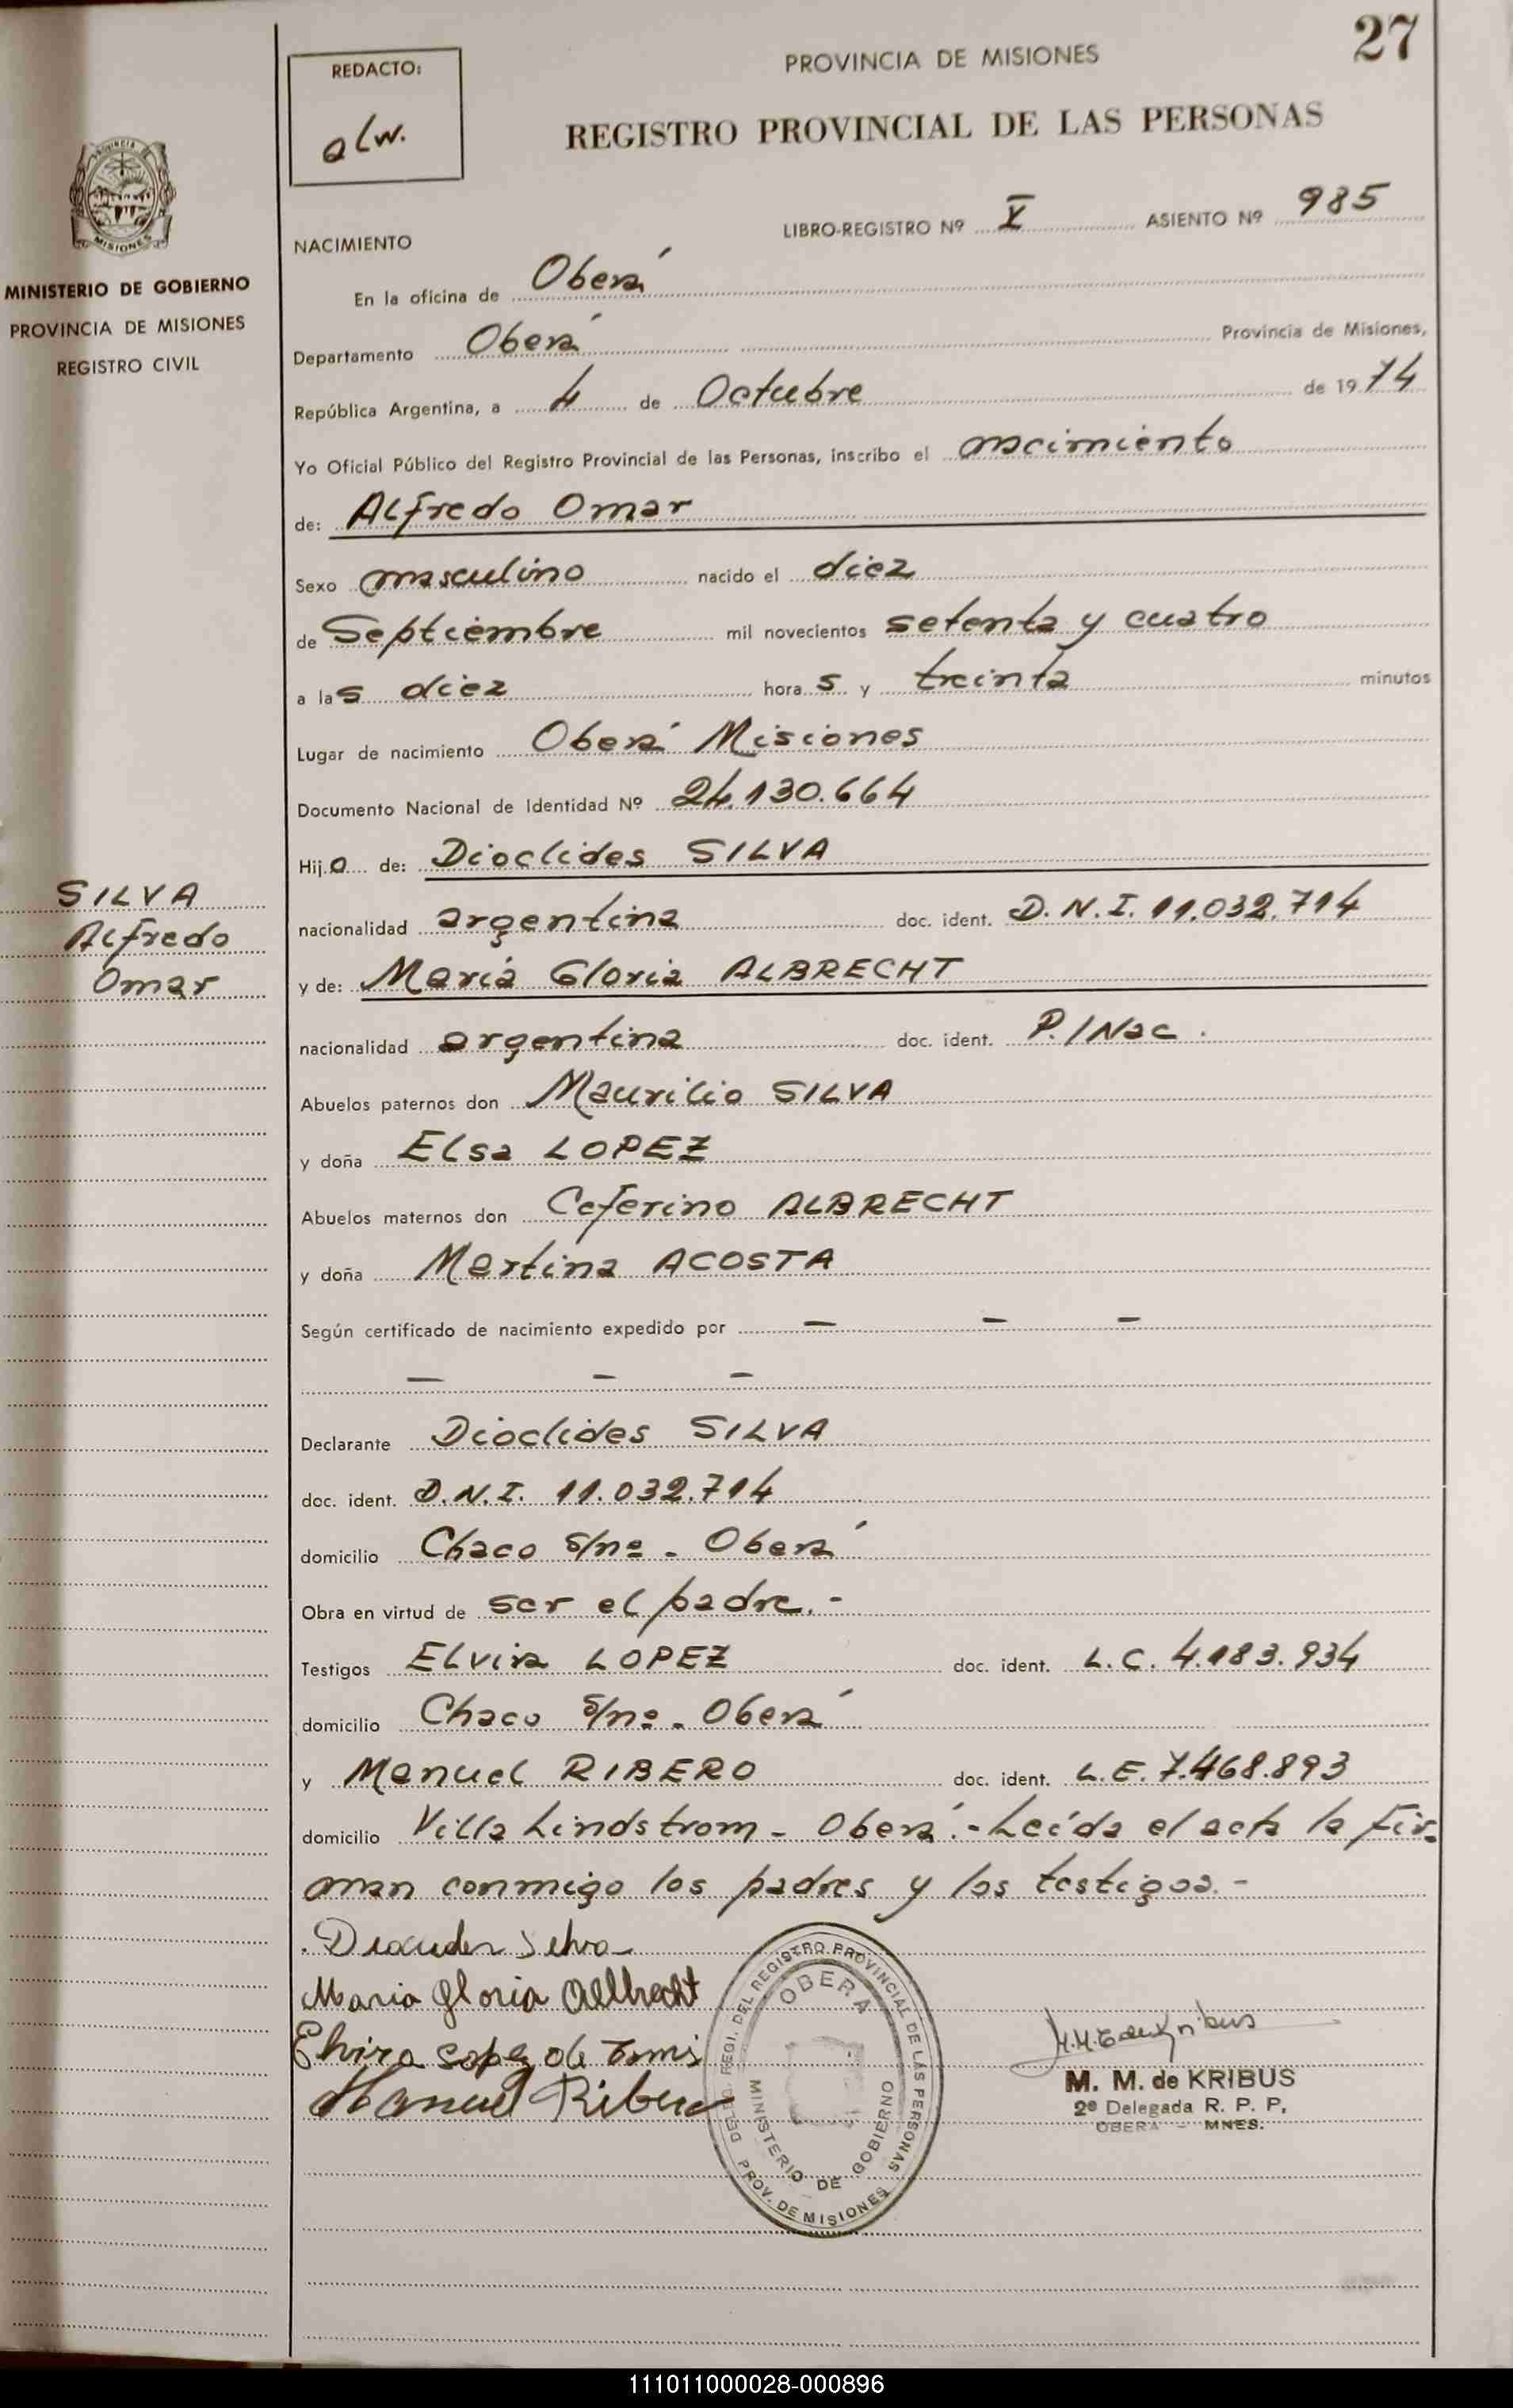 27
REDACTO:
alw.
PROVINCIA DE MISIONES
REGISTRO PROVINCIAL DE LAS PERSONAS
MISIONES
MINISTERIO DE GOBIERNO
PROVINCIA DE MISIONES
REGISTRO CIVIL
LIBRO-REGISTRO Nº X ASIENTO Nº 985
NACIMIENTO
En la oficina de Oberá
Departamento Oberá Provincia de Misiones,
República Argentina, a 4 de Octubre de 1974
Yo Oficial Público del Registro Provincial de las Personas, inscribo el nacimiento
de: Alfredo Omar
Sexo masculino nacido el diez
de Septiembre mil novecientos setenta y cuatro
a las diez horas y treinta minutos
Lugar de nacimiento Oberá Misiones
Documento Nacional de Identidad Nº 24.130.664
Hijo de: Dioclides SILVA
SILVA
Alfredo
Omar
nacionalidad argentina doc. ident. D.N.I. 11.032.714
y de: María Gloria ALBRECHT
nacionalidad argentina doc. ident. P./Nac.
Abuelos paternos don Maurilio SILVA
y doña Elsa LOPEZ
Abuelos maternos don Ceferino ALBRECHT
y doña Martina ACOSTA
Según certificado de nacimiento expedido por — — —
— — —
Declarante Dioclides SILVA
doc. ident. D.N.I. 11.032.714
domicilio Chaco s/nº - Oberá
Obra en virtud de ser el padre.-
Testigos Elvira LOPEZ doc. ident. L.C. 4.183.934
domicilio Chaco s/nº - Oberá
y Manuel RIBERO doc. ident. L.E. 7.468.893
domicilio Villa Lindstrom - Oberá.- Leída el acta la fir-
man conmigo los padres y los testigos.-
Silva
Maria Gloria Allbrecht
Elvira Lopez de
Manuel Ribero
DELEG. REGI. DEL REGISTRO PROVINCIAL DE LAS PERSONAS
OBERA
MINISTERIO DE GOBIERNO
PROV. DE MISIONES
M. M. de KRIBUS
2ª Delegada R. P. P.
OBERA - MNES.
111011000028-000896